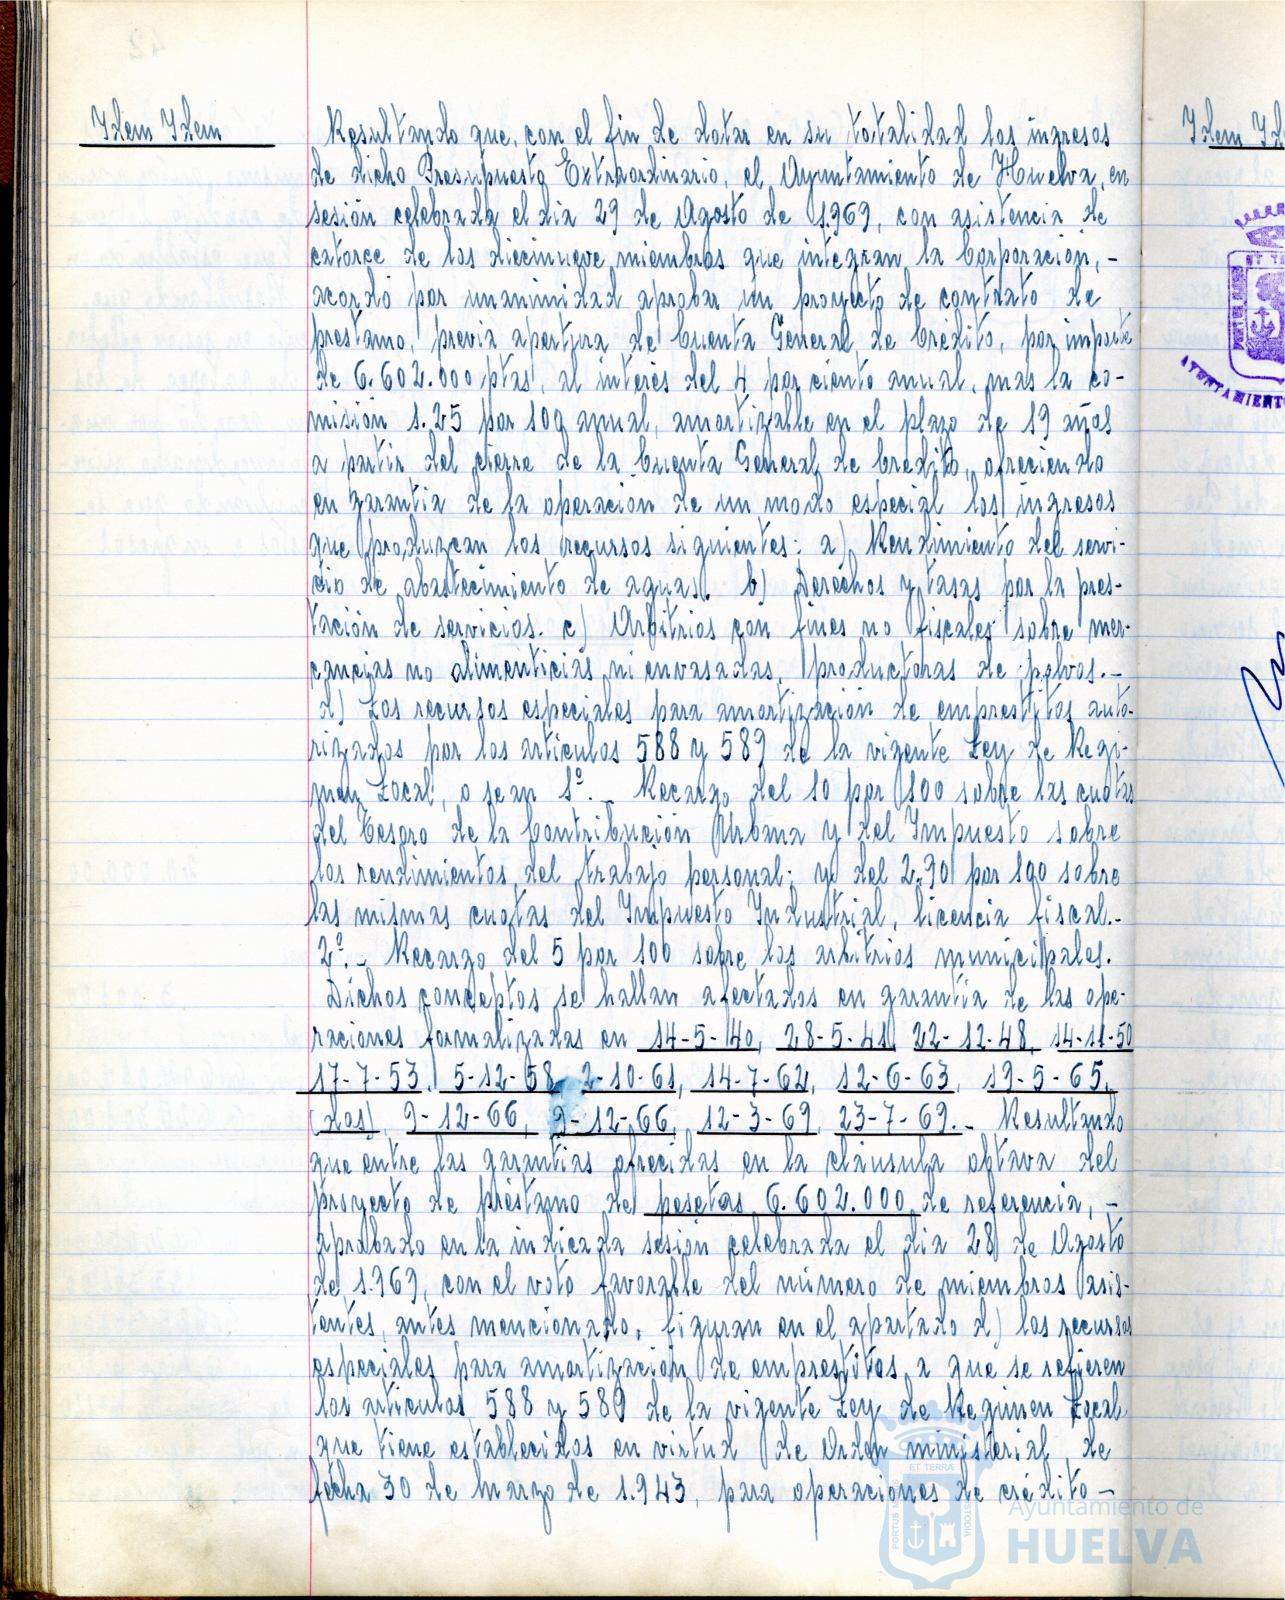 Idem Idem
Resultando que, con el fin de dotar en su totalidad los ingresos
de dicho Presupuesto Extraordinario, el Ayuntamiento de Huelva, en
sesión celebrada el dia 29 de Agosto de 1.969, con asistencia de
catorce de los diecinueve miembros que integran la Corporación, -
acordó por unanimidad aprobar un proyecto de contrato de
prestamo, previa apertura de Cuenta General de Crédito, por importe
de 6.602.000 ptas, al interés del 4 por ciento anual, mas la co-
misión 1.25 por 100 anual, amortizable en el plazo de 19 años
a partir del cierre de la Cuenta General de Credito, ofreciendo
en garantia de la operación de un modo especial los ingresos
que produzcan los recursos siguientes: a) Rendimiento del servi-
cio de abastecimiento de aguas. b) Derechos y tasas por la pres-
tación de servicios. c) Arbitrios con fines no fiscales sobre mer-
cancias no alimenticias, ni envasadas, productoras de polvos.-
d) Los recursos especiales para amortización de emprestitos auto-
rizados por los articulos 588 y 589 de la vigente Ley de Regi-
men Local, o sean 1º.- Recargo del 10 por 100 sobre las cuotas
del Tesoro de la Contribución Urbana y del Impuesto sobre
los rendimientos del trabajo personal; y del 2,90 por 100 sobre
las mismas cuotas del Impuesto Industrial, licencia fiscal.-
2º.- Recargo del 5 por 100 sobre los arbitrios municipales.
Dichos conceptos se hallan afectados en garantia de las ope-
raciones formalizadas en 14-5-40, 28-5-41, 22-12-48, 14-11-50
17-7-53, 5-12-58, 2-10-61, 14-7-62, 12-6-63, 19-5-65,
(dos), 9-12-66, 9-12-66, 12-3-69, 23-7-69.- Resultando
que entre las garantias ofrecidas en la cláusula octava del
proyecto de préstamo de pesetas 6.602.000 de referencia, -
aprobado en la indicada sesión celebrada el dia 28 de Agosto
de 1.969, con el voto favorable del número de miembros asis-
tentes, antes mencionado, figuran en el apartado d) los recursos
especiales para amortización de emprestitos, a que se refieren
los articulos 588 y 589 de la vigente Ley de Regimen Local
que tiene establecidos en virtud de Orden ministerial de
fecha 30 de Marzo de 1.943, para operaciones de crédito -
Idem
AYUNTAMIENTO
PORTUS
ET TERRAE
CUSTODIA
Ayuntamiento de
HUELVA